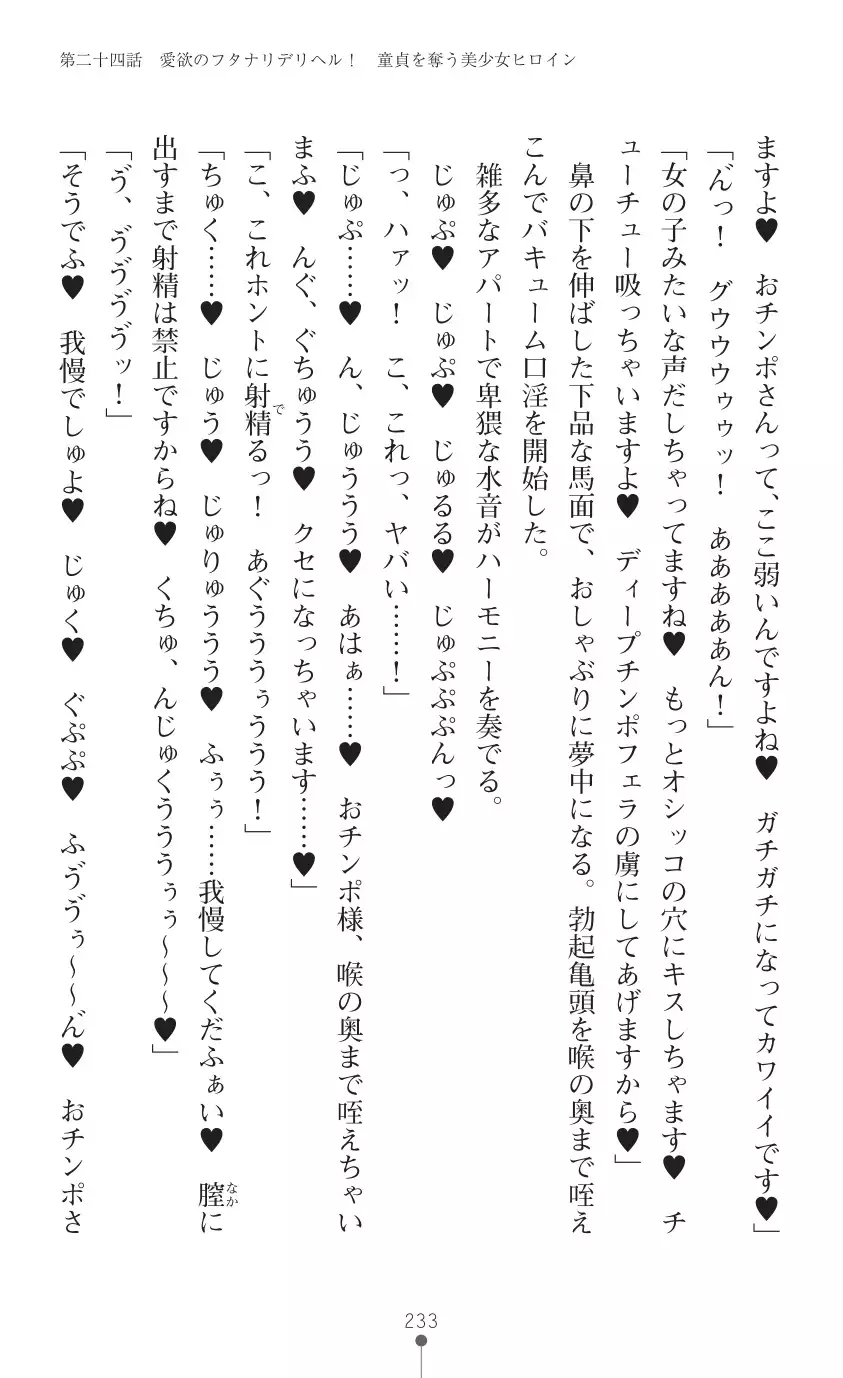 第二十四話　愛欲のフタナリデリヘル！　童貞を奪う美少女ヒロイン
ますよ♥　おチンポさんって、ここ弱いんですよね♥　ガチガチになってカワイイです♥」
「ん゛っ！　グウウウゥゥッ！　あああああん！」
「女の子みたいな声だしちゃってますね♥　もっとオシッコの穴にキスしちゃます♥　チ
ューチュー吸っちゃいますよ♥　ディープチンポフェラの虜にしてあげますから♥」
　鼻の下を伸ばした下品な馬面で、おしゃぶりに夢中になる。勃起亀頭を喉の奥まで咥え
こんでバキューム口淫を開始した。
　雑多なアパートで卑猥な水音がハーモニーを奏でる。
　じゅぷ♥　じゅぷ♥　じゅるる♥　じゅぷぷぷんっ♥
「っ、ハァッ！　こ、これっ、ヤバい……！」
「じゅぷ……♥　ん、じゅううう♥　あはぁ……♥　おチンポ様、喉の奥まで咥えちゃい
まふ♥　んぐ、ぐちゅうう♥　クセになっちゃいます……♥」
「こ、これホントに射精るっ！　あぐうううぅううう！」
「ちゅく……♥　じゅう♥　じゅりゅううう♥　ふぅぅ……我慢してくだふぁい♥　膣に
出すまで射精は禁止ですからね♥　くちゅ、んじゅくうううぅぅ～～～♥」
「ゔ、ゔゔゔゔッ！」
「そうでふ♥　我慢でしゅよ♥　じゅく♥　ぐぷぷ♥　ふゔゔぅ～～ん゛♥　おチンポさ
233